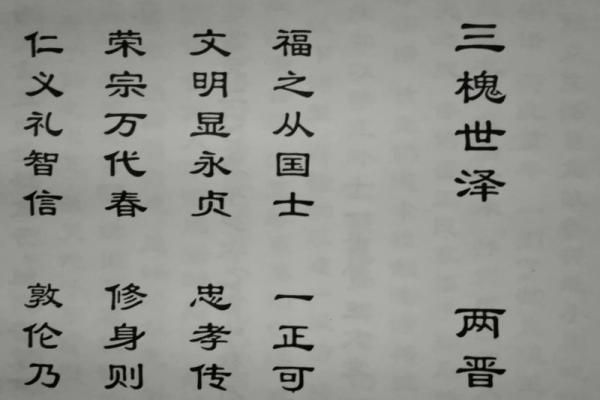 三槐世泽 两晋
福之从国士 一正可
文明显永贞 忠孝传
荣宗万代春 修身则
仁义礼智信 敦伦乃